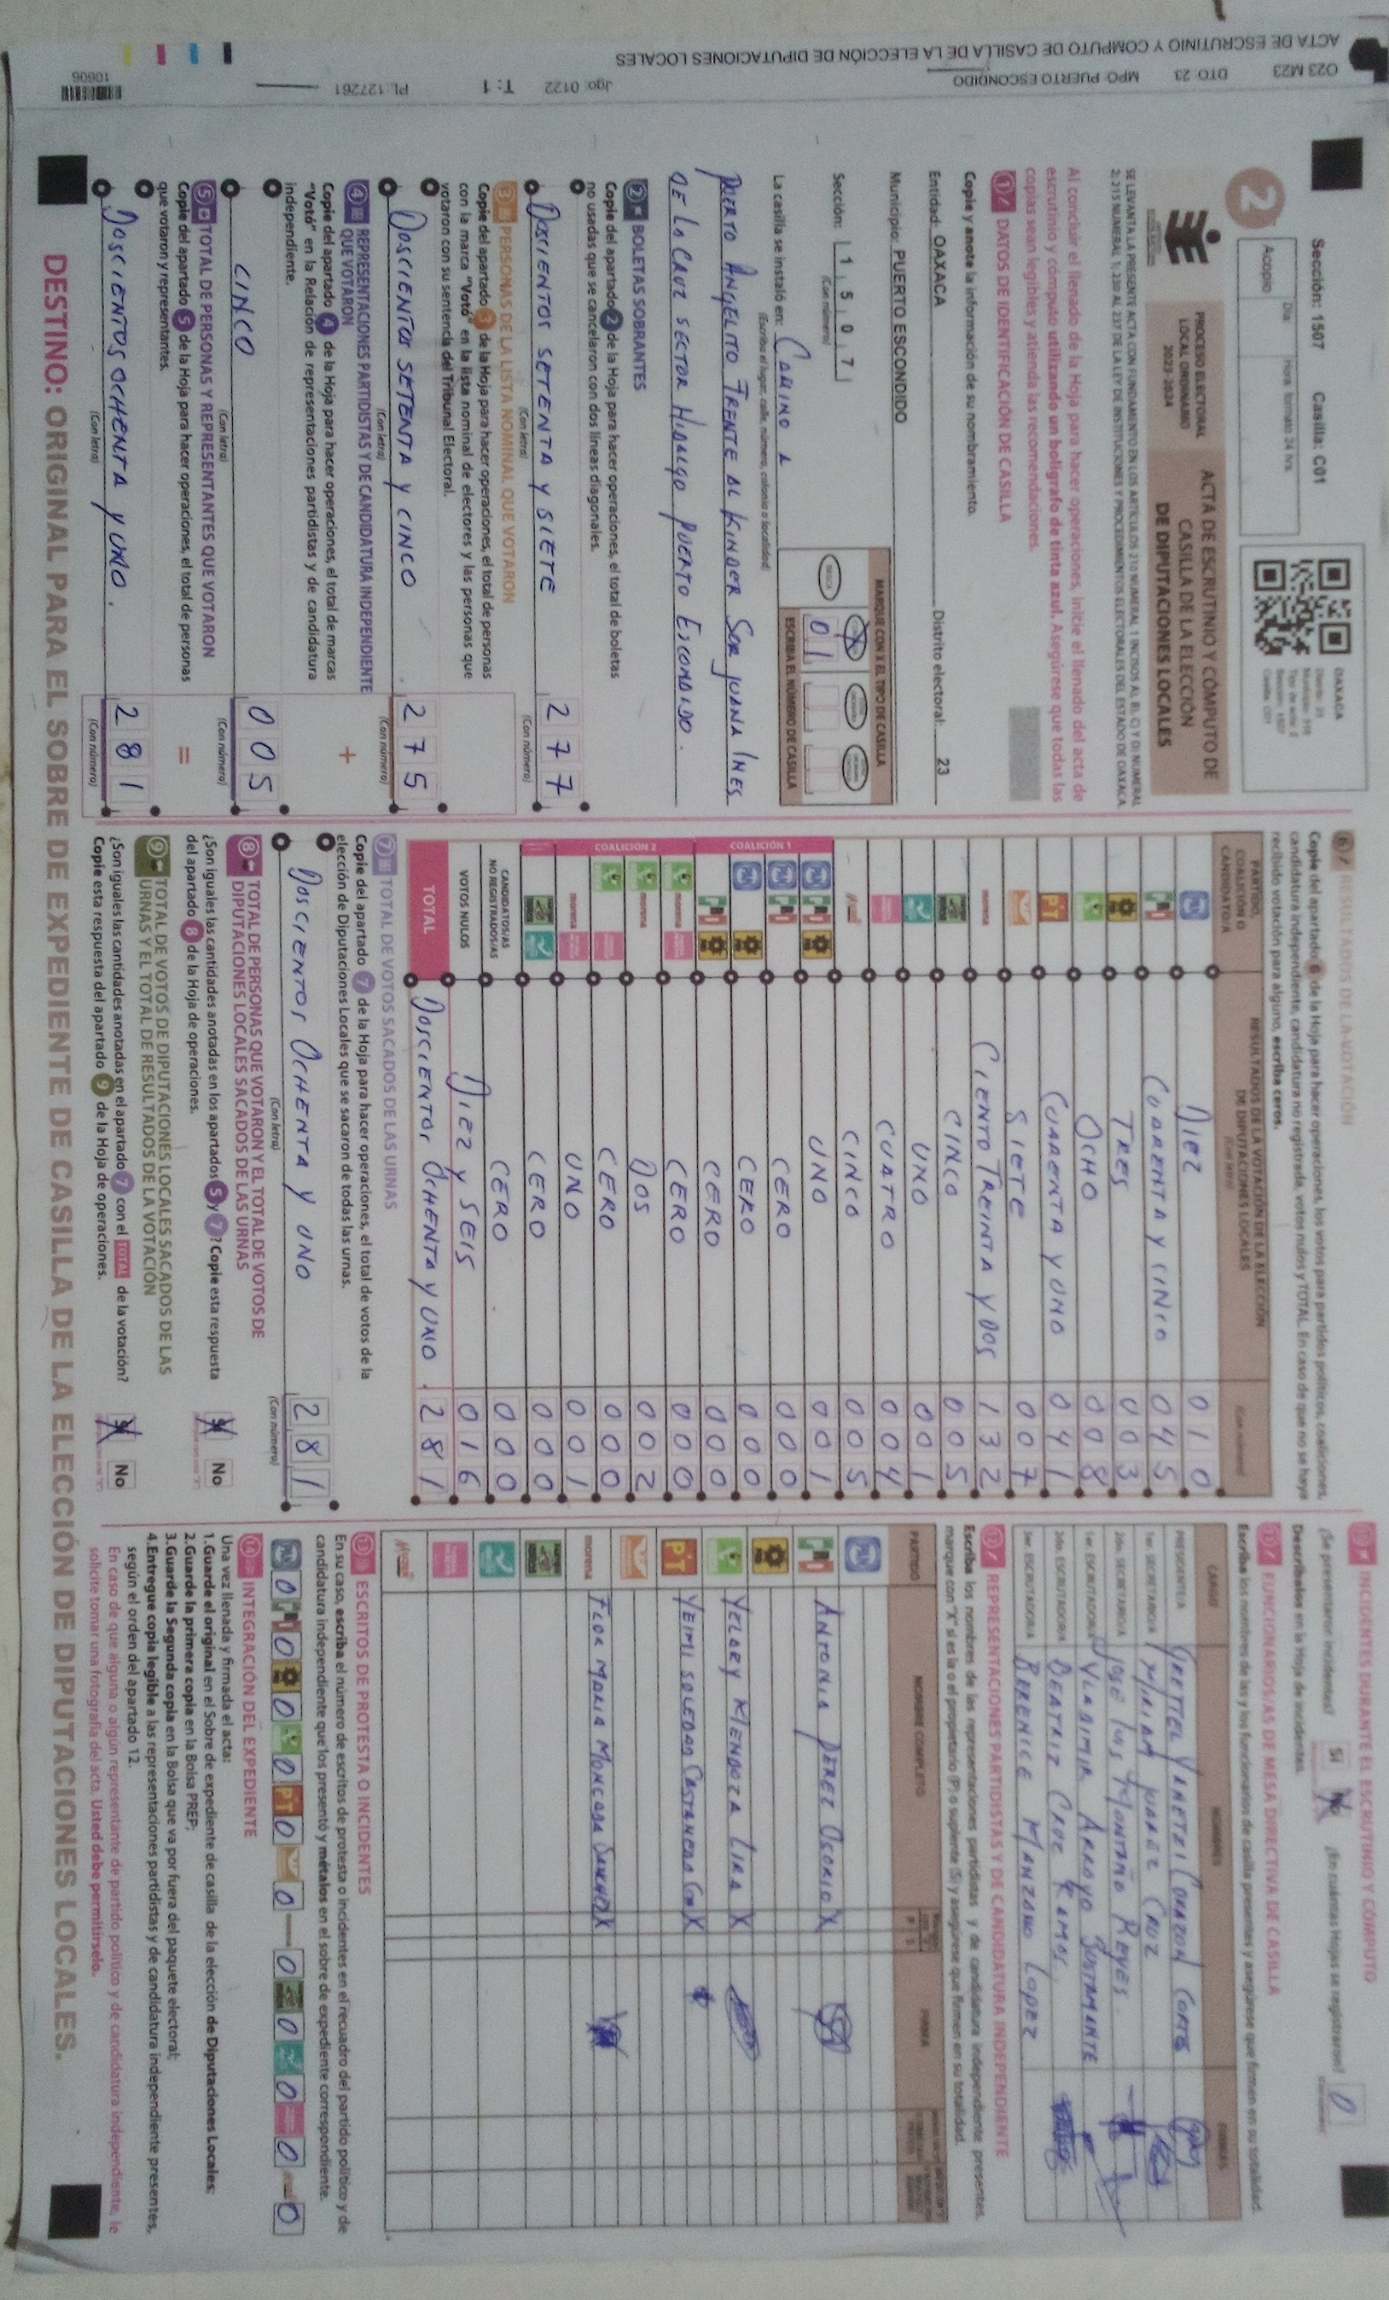 O23 M23 DTO: 23 MPO: PUERTO ESCONDIDO Jgo: 0122 T: 1 PL: 127261
ACTA DE ESCRUTINIO Y CÓMPUTO DE CASILLA DE LA ELECCIÓN DE DIPUTACIONES LOCALES
10606
Sección: 1507 Casilla: C01
Día Hora: formato 24 hrs.
Acopio:
2
OAXACA
PROCESO ELECTORAL
LOCAL ORDINARIO
2023-2024
ACTA DE ESCRUTINIO Y CÓMPUTO DE
CASILLA DE LA ELECCIÓN
DE DIPUTACIONES LOCALES
Al concluir el llenado de la Hoja para hacer operaciones, inicie el llenado del acta de
escrutinio y cómputo utilizando un bolígrafo de tinta azul. Asegúrese que todas las
copias sean legibles y atienda las recomendaciones.
1 DATOS DE IDENTIFICACIÓN DE CASILLA
Copie y anote la información de su nombramiento.
Entidad: OAXACA Distrito electoral: 23
Municipio: PUERTO ESCONDIDO
Sección: 1 5 0 7
(Con número)
MARQUE CON X EL TIPO DE CASILLA
X
0 1
ESCRIBA EL NÚMERO DE CASILLA
La casilla se instaló en: CAMINO A
(Escriba el lugar, calle, número, colonia o localidad)
PUERTO ANGELITO FRENTE AL KINDER SOR JUANA INES
DE LA CRUZ SECTOR HIDALGO PUERTO ESCONDIDO.
2 BOLETAS SOBRANTES
Copie del apartado 2 de la Hoja para hacer operaciones, el total de boletas
no usadas que se cancelaron con dos líneas diagonales.
DOSCIENTOS SETENTA Y SIETE 2 7 7
(Con letra) (Con número)
3 PERSONAS DE LA LISTA NOMINAL QUE VOTARON
Copie del apartado 3 de la Hoja para hacer operaciones, el total de personas
con la marca "Votó" en la lista nominal de electores y las personas que
votaron con su sentencia del Tribunal Electoral.
DOSCIENTOS SETENTA Y CINCO 2 7 5
(Con letra) (Con número)
4 REPRESENTACIONES PARTIDISTAS Y DE CANDIDATURA INDEPENDIENTE
QUE VOTARON
Copie del apartado 4 de la Hoja para hacer operaciones, el total de marcas
"Votó" en la Relación de representaciones partidistas y de candidatura
independiente.
+
CINCO 0 0 5
(Con letra) (Con número)
5 TOTAL DE PERSONAS Y REPRESENTANTES QUE VOTARON
Copie del apartado 5 de la Hoja para hacer operaciones, el total de personas
que votaron y representantes.
=
DOSCIENTOS OCHENTA Y UNO. 2 8 1
(Con letra) (Con número)
6 RESULTADOS DE LA VOTACIÓN
Copie del apartado 6 de la Hoja para hacer operaciones, los votos para partidos políticos, coaliciones,
candidatura independiente, candidatura no registrada, votos nulos y TOTAL. En caso de que no se haya
recibido votación para alguno, escriba ceros.
PARTIDO,
COALICIÓN O
CANDIDATO/A
RESULTADOS DE LA VOTACIÓN DE LA ELECCIÓN
DE DIPUTACIONES LOCALES
DIEZ 0 1 0
CUARENTA Y CINCO 0 4 5
TRES 0 0 3
OCHO 0 0 8
CUARENTA Y UNO 0 4 1
SIETE 0 0 7
morena CIENTO TREINTA Y DOS 1 3 2
CINCO 0 0 5
UNO 0 0 1
CUATRO 0 0 4
CINCO 0 0 5
COALICIÓN 1
UNO 0 0 1
CERO 0 0 0
CERO 0 0 0
CERO 0 0 0
COALICIÓN 2
CERO 0 0 0
DOS 0 0 2
CERO 0 0 0
UNO 0 0 1
CERO 0 0 0
CANDIDATOS/AS
NO REGISTRADOS/AS CERO 0 0 0
VOTOS NULOS DIEZ Y SEIS 0 1 6
TOTAL DOSCIENTOS OCHENTA Y UNO. 2 8 1
7 TOTAL DE VOTOS SACADOS DE LAS URNAS
Copie del apartado 7 de la Hoja para hacer operaciones, el total de votos de la
elección de Diputaciones Locales que se sacaron de todas las urnas.
DOSCIENTOS OCHENTA Y UNO 2 8 1
(Con letra) (Con número)
8 TOTAL DE PERSONAS QUE VOTARON Y EL TOTAL DE VOTOS DE
DIPUTACIONES LOCALES SACADOS DE LAS URNAS
¿Son iguales las cantidades anotadas en los apartados 5 y 7? Copie esta respuesta
del apartado 8 de la Hoja de operaciones.
Sí No
9 TOTAL DE VOTOS DE DIPUTACIONES LOCALES SACADOS DE LAS
URNAS Y EL TOTAL DE RESULTADOS DE LA VOTACIÓN
¿Son iguales las cantidades anotadas en el apartado 7 con el TOTAL de la votación?
Copie esta respuesta del apartado 9 de la Hoja de operaciones.
Sí No
INCIDENTES DURANTE EL ESCRUTINIO Y CÓMPUTO
¿Se presentaron incidentes? Sí No ¿En cuántas Hojas se registraron? 0
Descríbalos en la Hoja de incidentes.
FUNCIONARIOS/AS DE MESA DIRECTIVA DE CASILLA
Escriba los nombres de las y los funcionarios de casilla presentes y asegúrese que firmen en su totalidad.
CARGO NOMBRES FIRMAS
1er. SECRETARIO/A MIRIAM JUAREZ CRUZ
2do. SECRETARIO/A JOSÉ LUIS MONTAÑO REYES
1er. ESCRUTADOR/A VLADIMIR ARROYO BUSTAMANTE
2do. ESCRUTADOR/A BEATRIZ CRUZ RAMOS
3er. ESCRUTADOR/A BERENICE MANZANO LOPEZ
REPRESENTACIONES PARTIDISTAS Y DE CANDIDATURA INDEPENDIENTE
Escriba los nombres de las representaciones partidistas y de candidatura independiente presentes,
marque con "X" si es la o el propietario (P) o suplente (S) y asegúrese que firmen en su totalidad.
PARTIDO NOMBRE COMPLETO FIRMA
ANTONIA PEREZ OSORIO X
YELARY MENDOZA LIRA X
YEIMI SOLEDAD CASTAÑEDA X
morena FLOR MARIA MONCADA X
ESCRITOS DE PROTESTA O INCIDENTES
En su caso, escriba el número de escritos de protesta o incidentes en el recuadro del partido político y de
candidatura independiente que los presentó y métalos en el sobre de expediente correspondiente.
0 0 0 0 0 0 0 0 0 0 0
INTEGRACIÓN DEL EXPEDIENTE
Una vez llenada y firmada el acta:
1. Guarde el original en el Sobre de expediente de casilla de la elección de Diputaciones Locales;
2. Guarde la primera copia en la Bolsa PREP;
3. Guarde la Segunda copia en la Bolsa que va por fuera del paquete electoral;
4. Entregue copia legible a las representaciones partidistas y de candidatura independiente presentes,
según el orden del apartado 12.
En caso de que alguna o algún representante de partido político y de candidatura independiente, le
solicite tomar una fotografía del acta. Usted debe permitírselo.
DESTINO: ORIGINAL PARA EL SOBRE DE EXPEDIENTE DE CASILLA DE LA ELECCIÓN DE DIPUTACIONES LOCALES.